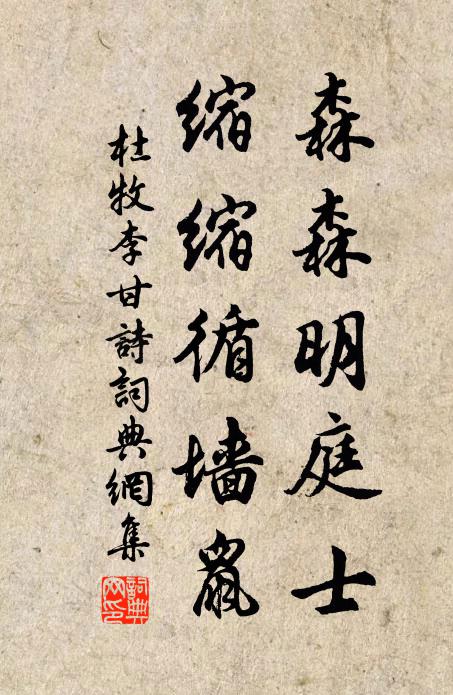 森森明庭士
缩缩循墙鼠
杜牧李甘詩詞典網集
詞典文印